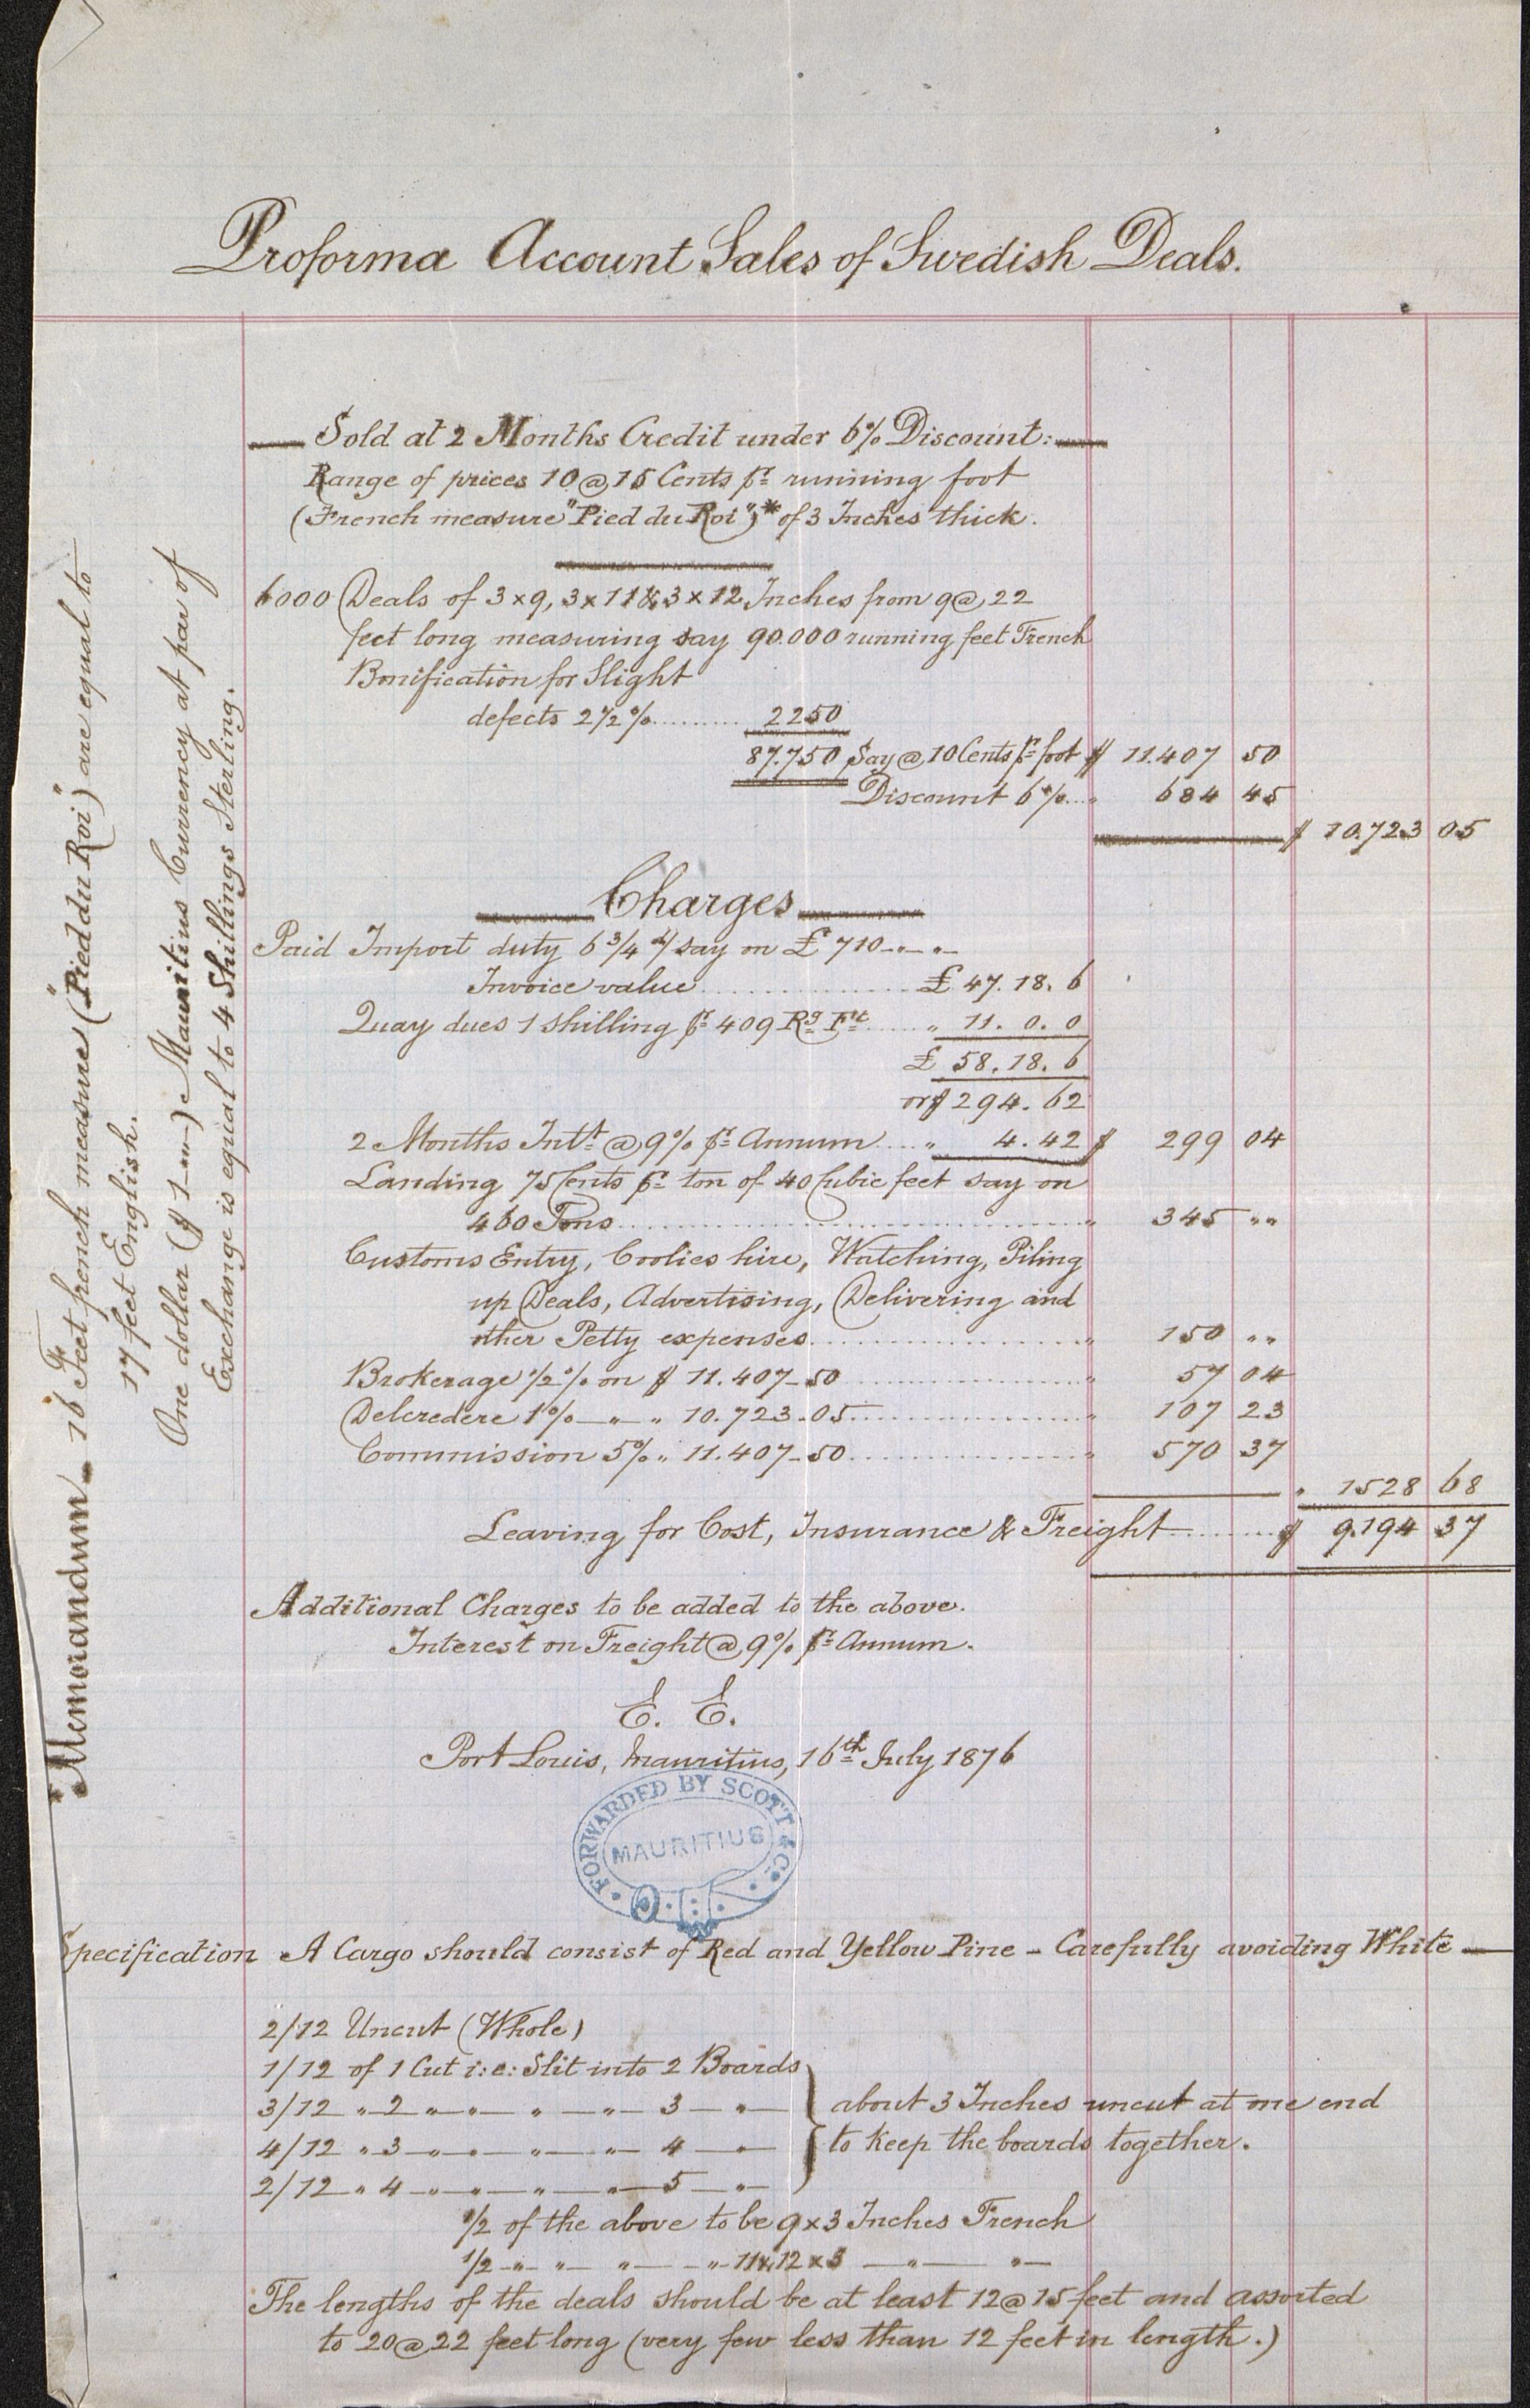 Proforma Account Sales of Swedish Deals.
Sold at 2 Months Credit under 6% Discount:
Range of prices 10 @ 15 Cents pr running foot
(French measure "Pied du Roi")* of 3 Inches thick.
6000 Deals of 3 x 9, 3 x 11 & 3 x 12 Inches from 9 @ 22
feet long measuring say 90.000 running feet French
Bonification for Slight
defects 2 1/2 % ......... 2250
87.750 Say @ 10 Cents pr foot $ 11.407 50
Discount 6% ... " 684 45
$ 10.723 05
Charges
Paid Import duty 6 3/4 % say on £ 710 - " - "
Invoice value ............ £ 47. 18. 6
Quay dues 1 shilling pr 409 Rg Ft ..... " 11. 0. 0
£ 58. 18. 6
or $ 294. 62
2 Months Intt @ 9% pr Annum .... " 4. 42 $ 299 04
Landing 75 Cents pr ton of 40 Cubic feet say on
460 Tons ............ " 345 " "
Customs Entry, Coolies hire, Watching, Piling
up Deals, Advertising, Delivering and
other Petty expenses ............ " 150 " "
Brokerage 1/2 % on $ 11.407 - 50 ............ " 57 04
Delcredere 1% — " — " 10.723 - 05 ............ " 107 23
Commission 5% " 11.407 - 50 ............ " 570 37
" 1528 68
Leaving for Cost, Insurance & Freight ......... $ 9.194 37
Additional Charges to be added to the above.
Interest on Freight @ 9% pr Annum.
E. E.
Port Louis, Mauritius, 16th July 1876
FORWARDED BY SCOTT & Co
MAURITIUS
Specification A Cargo should consist of Red and Yellow Pine - Carefully avoiding White —
2/12 Uncut (Whole)
1/12 of 1 Cut i: e: Slit into 2 Boards
3/12 " 2 " " " " 3 — " — about 3 Inches uncut at one end
4/12 " 3 " " " " 4 — " — to keep the boards together.
2/12 " 4 " " " " 5 — " —
1/2 of the above to be 9 x 3 Inches French
1/2 " " " " 11 & 12 x 3 — " — " —
The lengths of the deals should be at least 12 @ 15 feet and assorted
to 20 @ 22 feet long (very few less than 12 feet in length.)
*Memorandum - 16 Feet french measure ("Pied du Roi") are equal to
17 feet English.
One dollar ($ 1 - " - ) Mauritius Currency at par of
Exchange is equal to 4 Shillings Sterling.